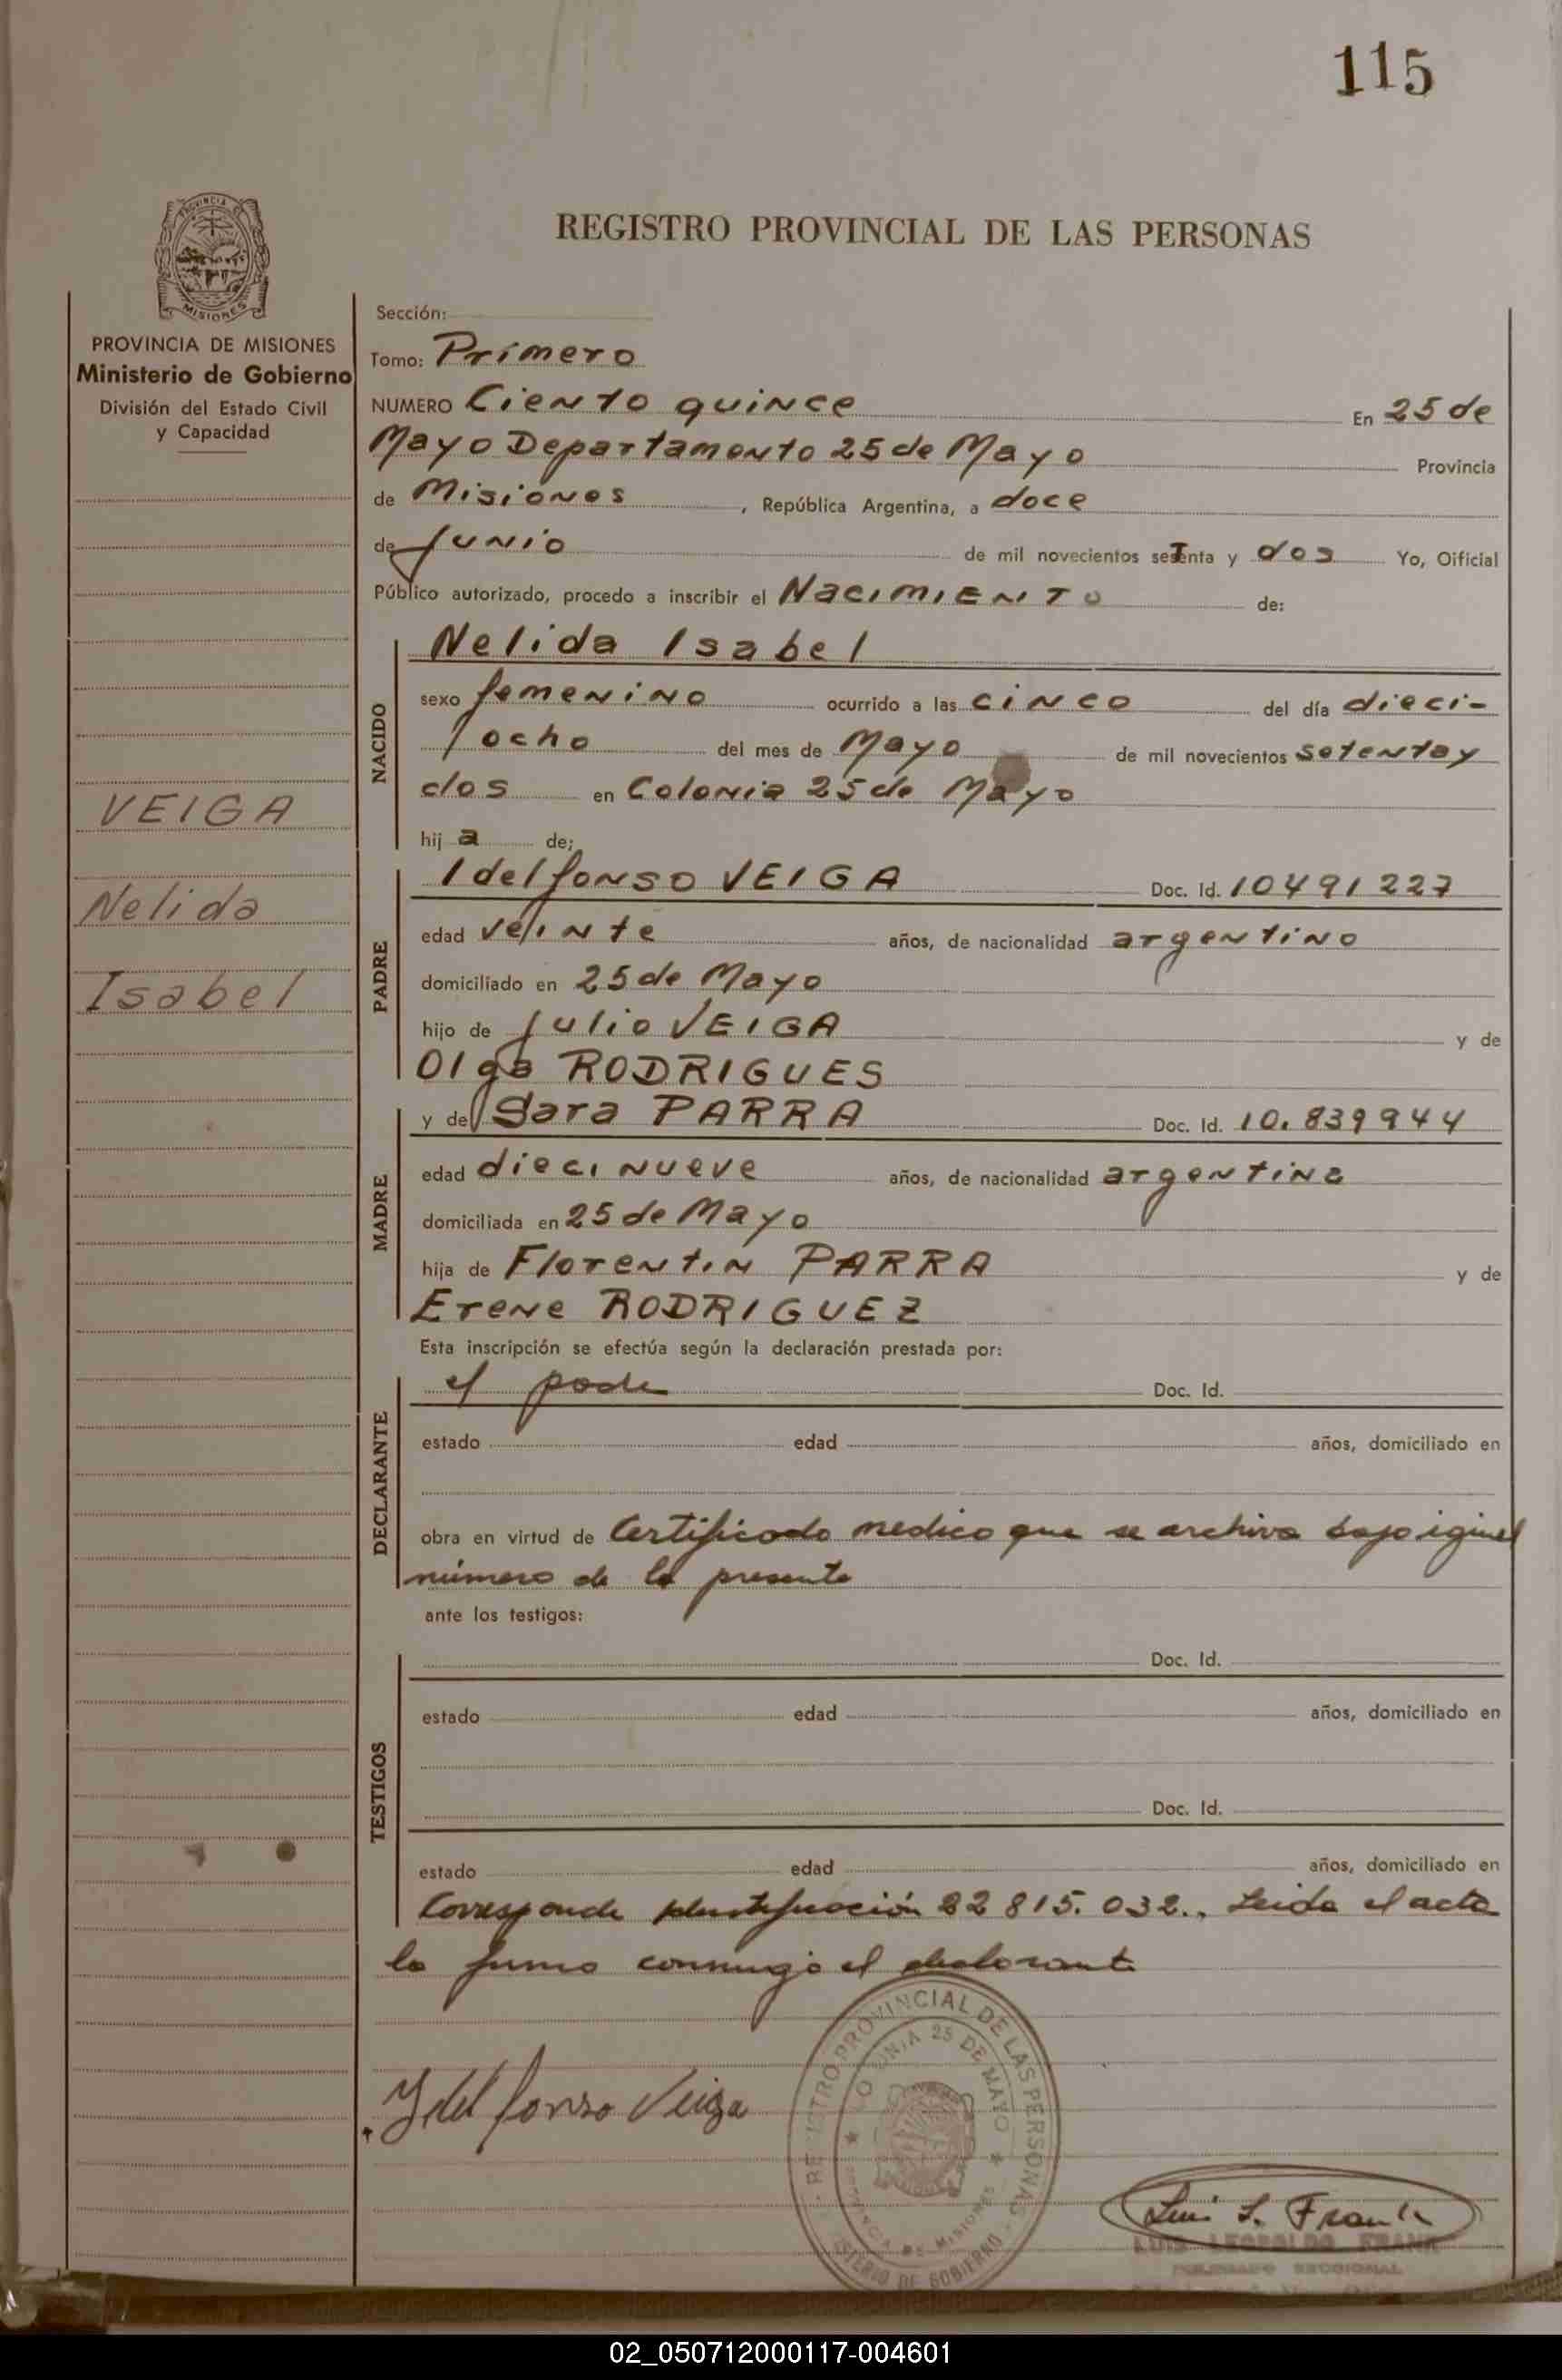 115
REGISTRO PROVINCIAL DE LAS PERSONAS
PROVINCIA DE MISIONES
Ministerio de Gobierno
División del Estado Civil
y Capacidad
VEIGA
Nelida
Isabel
Sección:
Tomo: Primero
NUMERO Ciento quince En 25 de
Mayo Departamento 25 de Mayo Provincia
de Misiones, República Argentina, a doce
de Junio de mil novecientos setenta y dos Yo, Oificial
Público autorizado, procedo a inscribir el Nacimiento de:
NACIDO
Nelida Isabel
sexo femenino ocurrido a las cinco del día dieci-
ocho del mes de Mayo de mil novecientos setenta y
dos en Colonia 25 de Mayo
hij a de;
PADRE
Idelfonso VEIGA Doc. Id. 10491227
edad veinte años, de nacionalidad argentino
domiciliado en 25 de Mayo
hijo de Julio VEIGA y de
Olga RODRIGUES
MADRE
y de Sara PARRA Doc. Id. 10.839944
edad diecinueve años, de nacionalidad argentina
domiciliada en 25 de Mayo
hija de Florentin PARRA y de
Erene RODRIGUEZ
Esta inscripción se efectúa según la declaración prestada por:
DECLARANTE
el padre Doc. Id.
estado edad años, domiciliado en
obra en virtud de Certificado medico que se archiva bajo igual
número de la presente
ante los testigos:
TESTIGOS
Doc. Id.
estado edad años, domiciliado en
Doc. Id.
estado edad años, domiciliado en
Corresponde 22 815.032., Leida el acta
la firma conmigo el declarante
Ydelfonso Veiga
REGISTRO PROVINCIAL DE LAS PERSONAS
COLONIA 25 DE MAYO
PROVINCIA DE MISIONES
MINISTERIO DE GOBIERNO
Luis L. Frank
LUIS LEOPOLDO FRANK
02_050712000117-004601